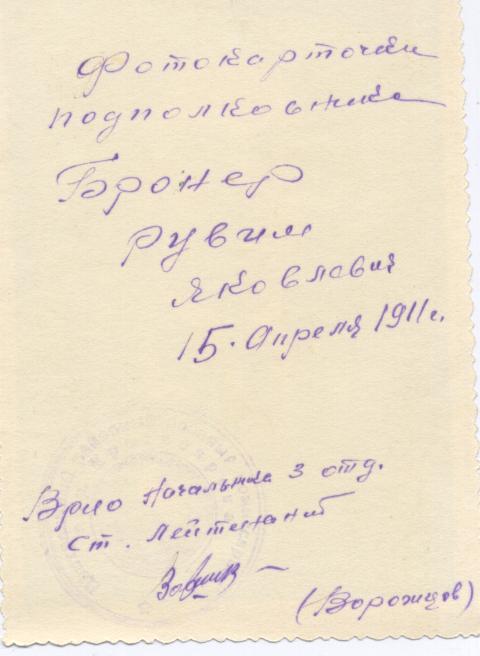 Фотокарточки
подполковника
Бронер
Рувим
Яковлевич
15. Апреля 1911г.
Врио Начальника 3 отд.
Ст. Лейтенант
(Ворожцов)